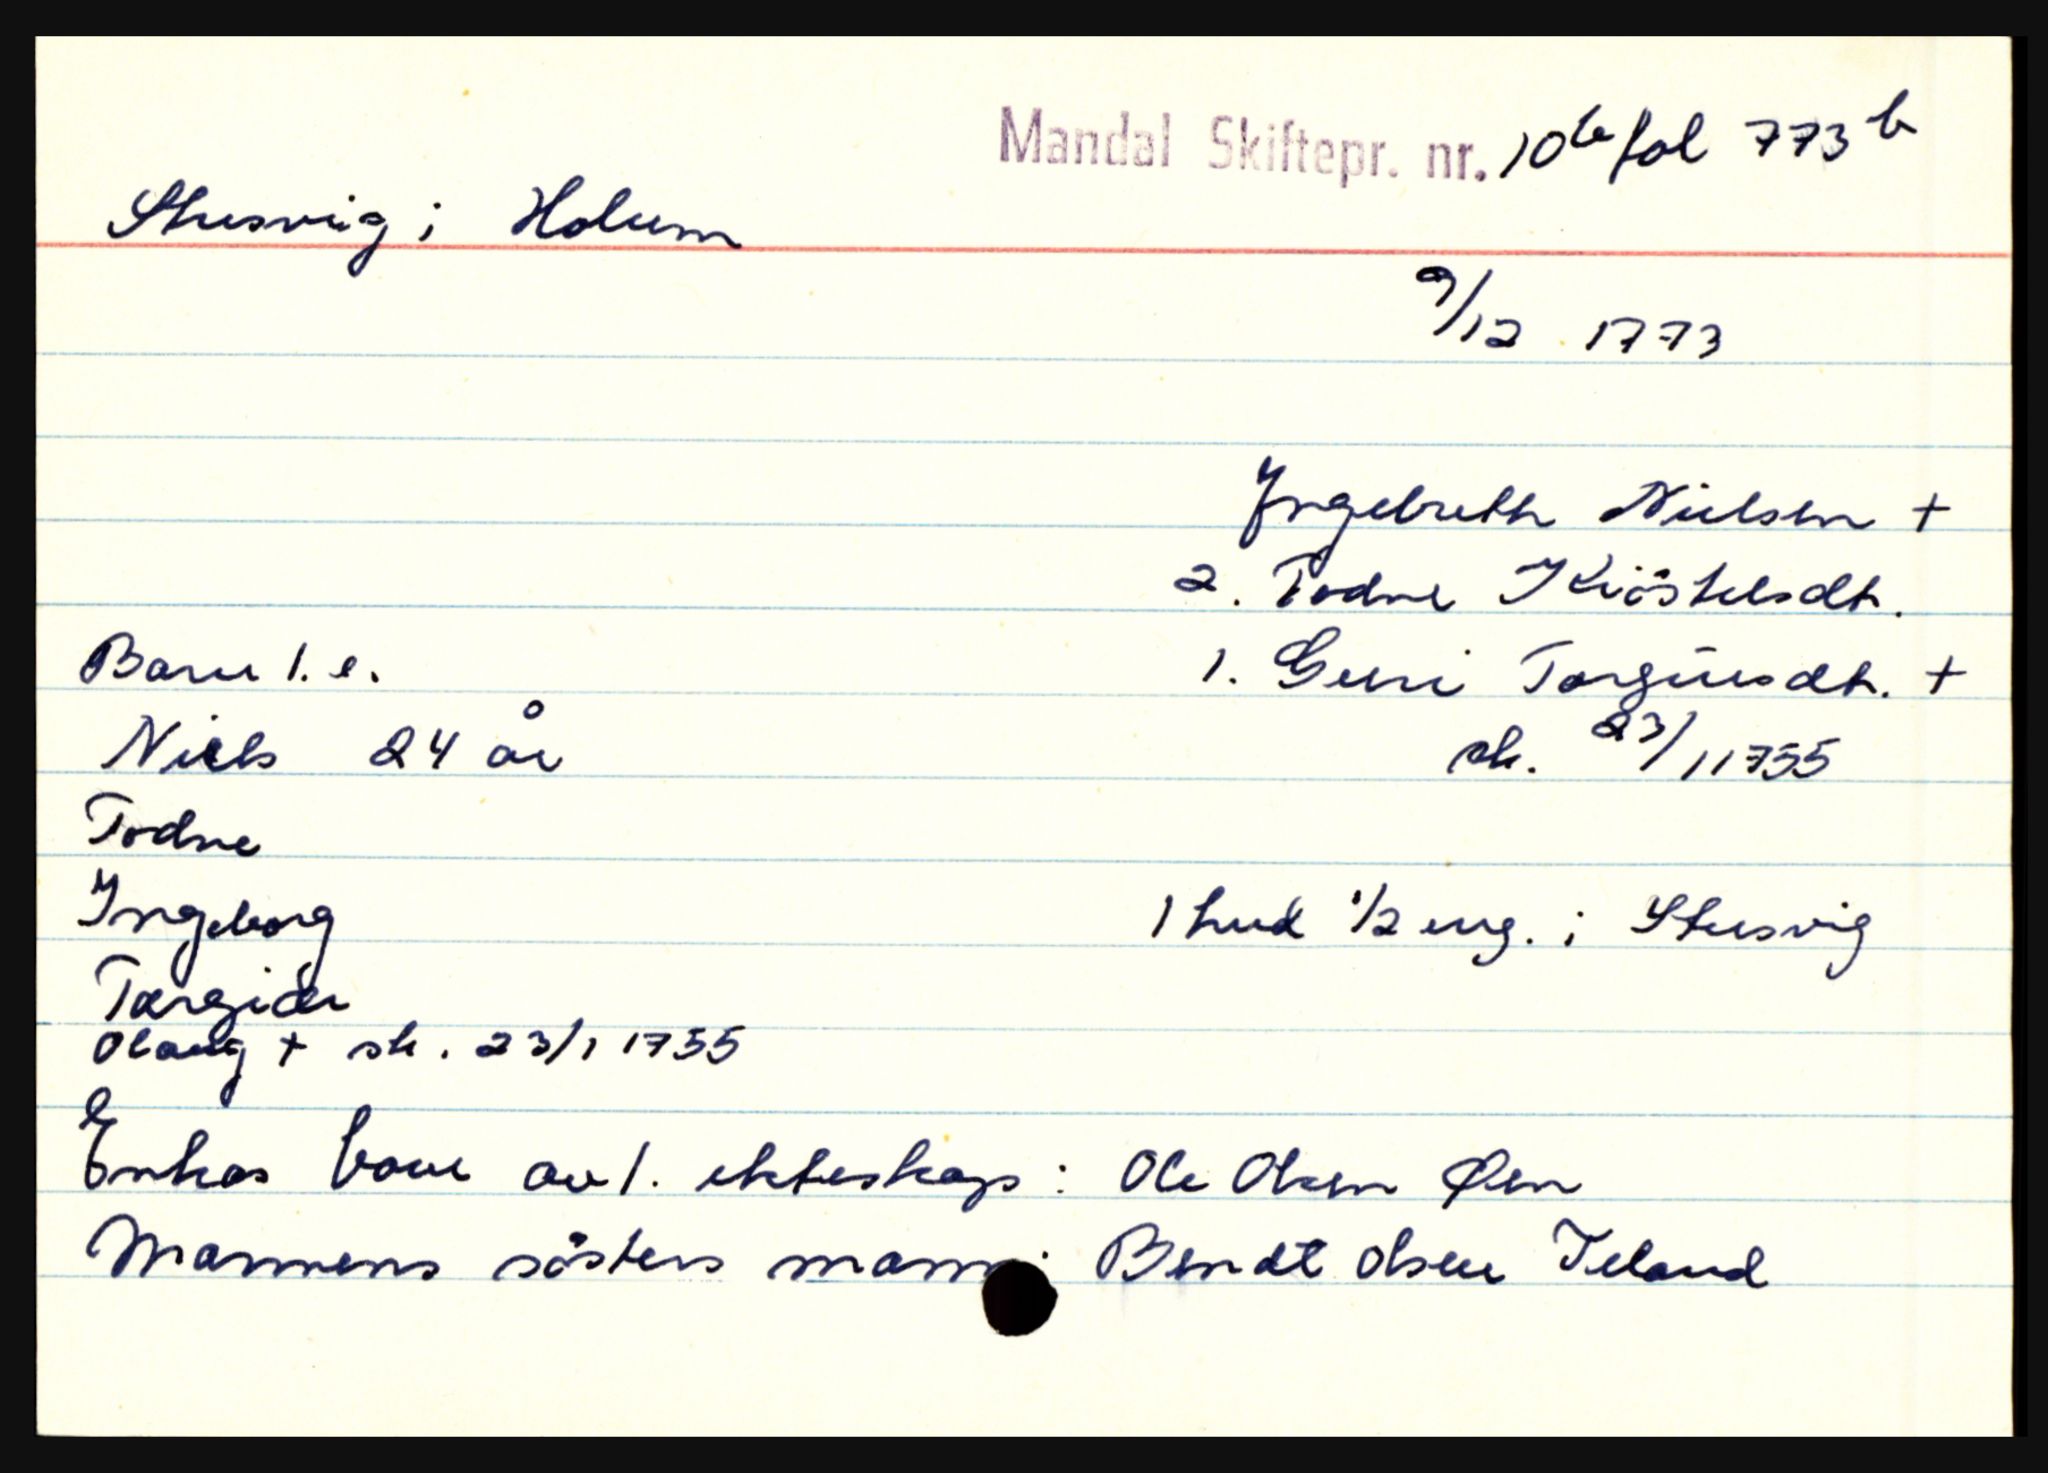 Mandal Skiftepr. nr. 10b fol 773b
Stusvig i Holum
9/12 1773
Yngebreth Nielsen +
2. Todne Kiöstelsdtr.
Barn 1. e.
1. Guri Torgiusdtr. +
Niels 24 år
sk. 23/1 1755
Todne
Ingeborg
1 hud 1/2 eng. i Stusvig
Targier
Olaug + sk. 23/1 1755
Enkas barn av 1. ekteskap: Ole Olsen Øen
Mannens sösters mann: Bendt Olsen